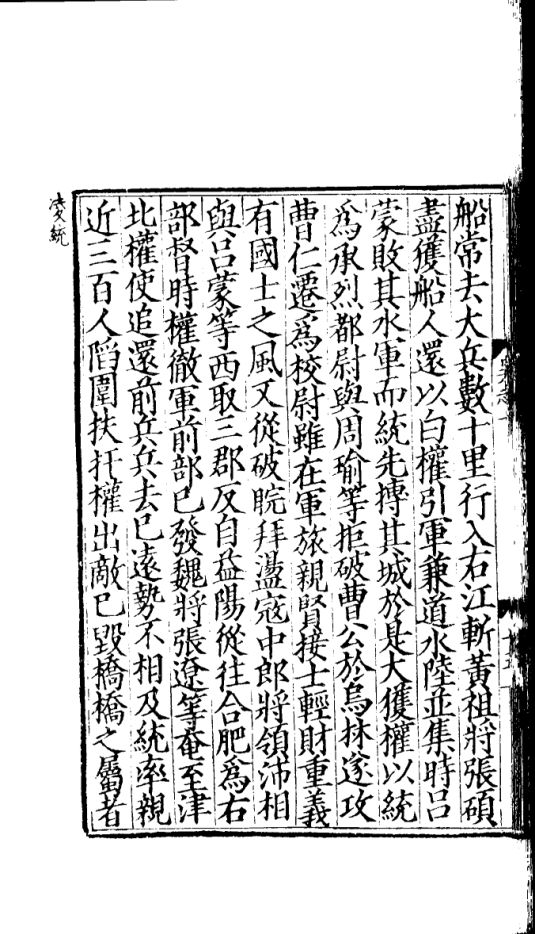 船常去大兵數十里行入右江斬黃祖將張碩
盡獲船人還以白權引軍兼道水陸並集時呂
蒙敗其水軍而統先搏其城於是大獲權以統
爲承烈都尉與周瑜等拒破曹公於烏林遂攻
曹仁遷爲校尉雖在軍旅親賢接士輕財重義
有國士之風又從破皖拜盪寇中郎將領沛相
與呂蒙等西取三郡反自益陽從往合肥爲右
部督時權徹軍前部已發魏將張遼等奄至津
北權使追還前兵兵去已遠勢不相及統率親
近三百人陷圍扶扞權出敵已毀橋橋之屬者
凌統